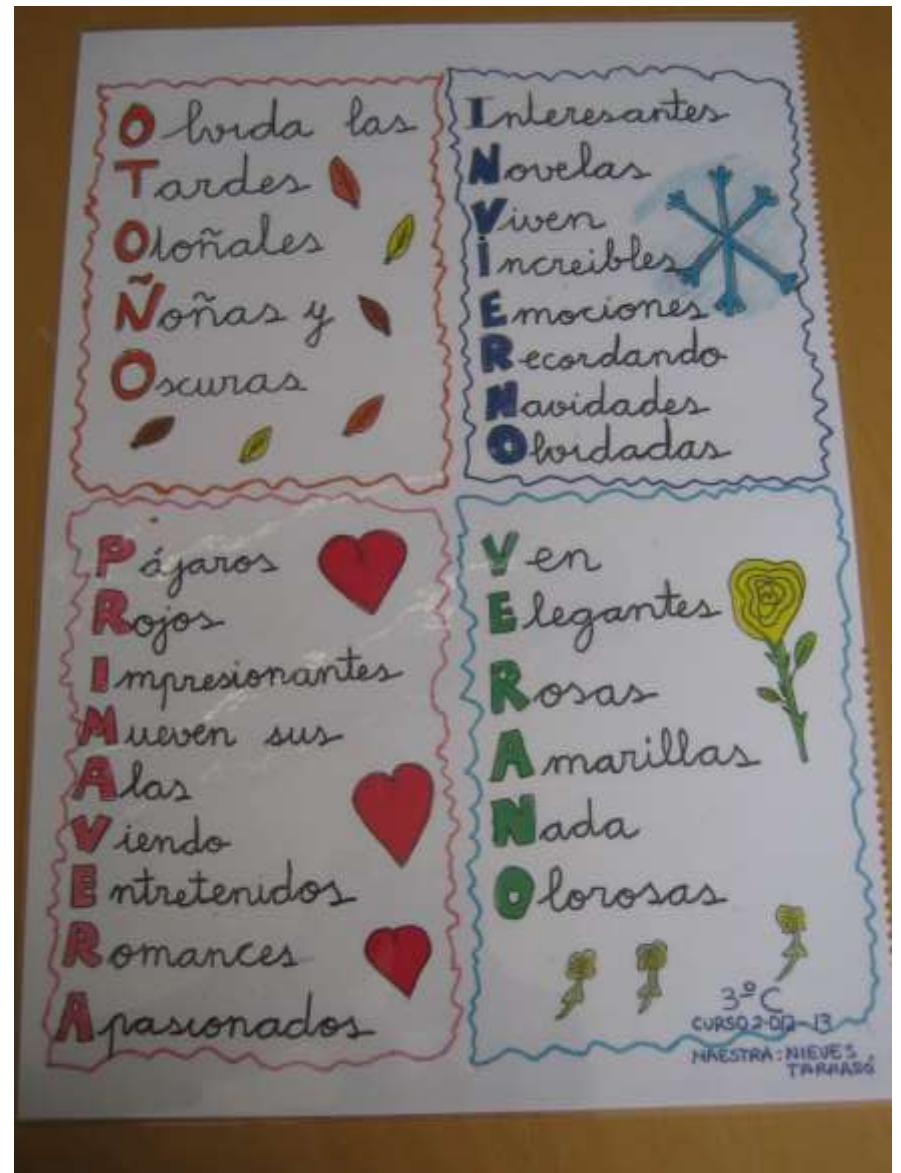 Olvida las
Tardes
Otoñales
Ñoñas y
Oscuras
Interesantes
Novelas
Viven
Increibles
Emociones
Recordando
Navidades
Olvidadas
Pájaros
Rojos
Impresionantes
Mueven sus
Alas
Viendo
Entretenidos
Romances
Apasionados
Ven
Elegantes
Rosas
Amarillas
Nada
Olorosas
3º C
CURSO 2.012-13
MAESTRA: NIEVES